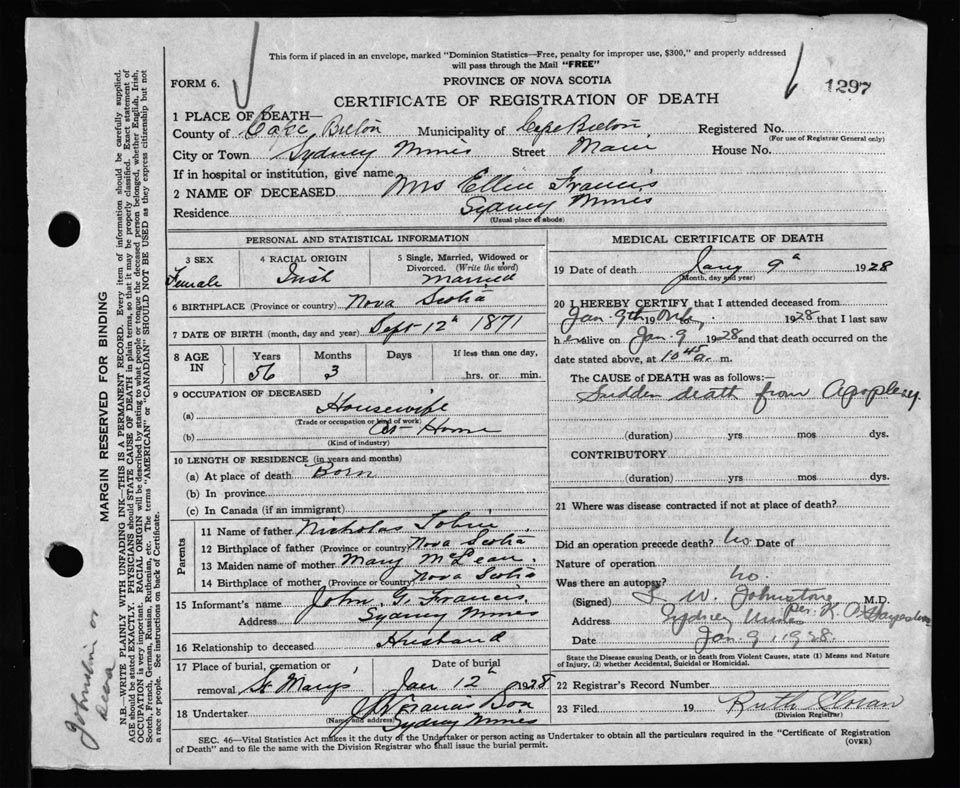 This form if placed in an envelope, marked "Dominion Statistics—Free, penalty for improper use, $300," and properly addressed
will pass through the Mail "FREE"
FORM 6. PROVINCE OF NOVA SCOTIA 1297
CERTIFICATE OF REGISTRATION OF DEATH
1 PLACE OF DEATH—
County of Cape Breton Municipality of Cape Breton Registered No.
(For use of Registrar General only)
City or Town Sydney Mines Street Main House No.
If in hospital or institution, give name
2 NAME OF DECEASED Mrs Ellin Francis
Residence Sydney Mines
(Usual place of abode)
PERSONAL AND STATISTICAL INFORMATION
3 SEX 4 RACIAL ORIGIN 5 Single, Married, Widowed or
Divorced. (Write the word)
Female Irish Married
6 BIRTHPLACE (Province or country) Nova Scotia
7 DATE OF BIRTH (month, day and year) Sept 12th 1871
8 AGE IN Years Months Days If less than one day,
56 3 hrs. or min.
9 OCCUPATION OF DECEASED
(a) Housewife
(Trade or occupation or kind of work)
(b) At Home
(Kind of industry)
10 LENGTH OF RESIDENCE (in years and months)
(a) At place of death Born
(b) In province
(c) In Canada (if an immigrant)
Parents
11 Name of father Nicholas Tobin
12 Birthplace of father (Province or country) Nova Scotia
13 Maiden name of mother Mary McLean
14 Birthplace of mother (Province or country) Nova Scotia
15 Informant's name John G. Francis
Address Sydney Mines
16 Relationship to deceased Husband
17 Place of burial, cremation or Date of burial
removal St Mary's Jan 12th 1928
18 Undertaker Francis Son
(Name and address) Sydney Mines
MEDICAL CERTIFICATE OF DEATH
19 Date of death Jany 9th 1928
(Month, day and year)
20 I HEREBY CERTIFY that I attended deceased from
Jan. 9th 19 only, 1928 that I last saw
her alive on Jan. 9 1928 and that death occurred on the
date stated above, at 10 45 a. m.
The CAUSE of DEATH was as follows:—
Sudden death from Apoplexy
(duration) yrs mos dys.
CONTRIBUTORY
(duration) yrs mos dys.
21 Where was disease contracted if not at place of death?
Did an operation precede death? No Date of
Nature of operation
Was there an autopsy no.
(Signed) L. W. Johnstone M.D.
Address Sydney Mines Per. K.
Date Jan 9, 1928
State the Disease causing Death, or in death from Violent Causes, state (1) Means and Nature
of Injury, (2) whether Accidental, Suicidal or Homicidal.
22 Registrar's Record Number
23 Filed 19 Ruth
(Division Registrar)
SEC. 46—Vital Statistics Act makes it the duty of the Undertaker or person acting as Undertaker to obtain all the particulars required in the "Certificate of Registration
of Death" and to file the same with the Division Registrar who shall issue the burial permit. (OVER)
MARGIN RESERVED FOR BINDING
N.B.—WRITE PLAINLY WITH UNFADING INK—THIS IS A PERMANENT RECORD. Every item of information should be carefully supplied.
AGE should be stated EXACTLY. PHYSICIANS should STATE CAUSE OF DEATH in plain terms, so that it may be properly classified. Exact statement of
OCCUPATION is very important. RACIAL ORIGIN will be described by stating to what people or tongue the deceased person belonged, whether English, Irish,
Scotch, French, German, Russian, Ruthenian, etc. The terms "AMERICAN" or "CANADIAN" SHOULD NOT BE USED as they express citizenship but not
a race or people. See instructions on back of Certificate.